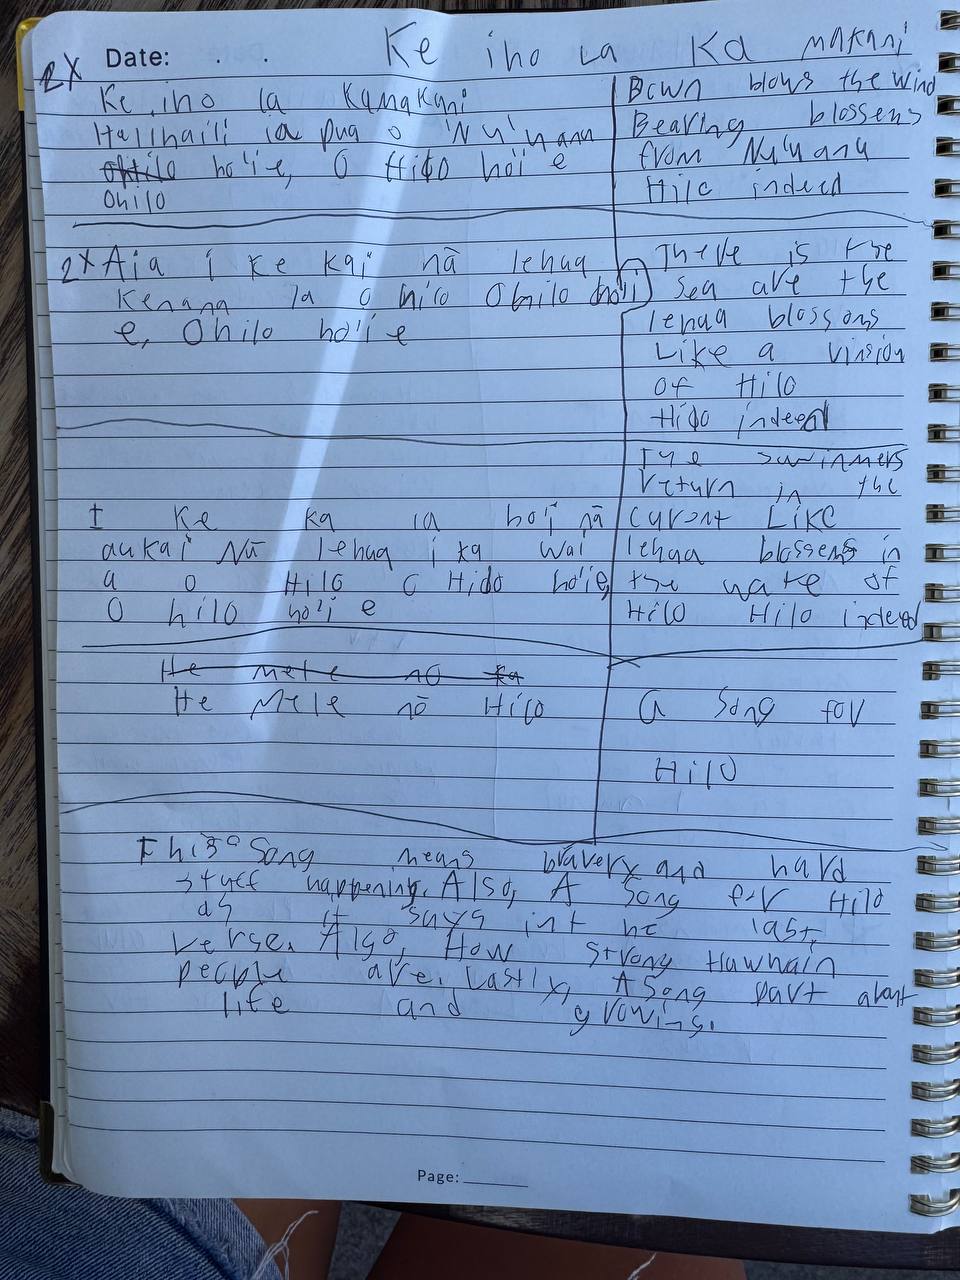 Date: . . Ke iho La Ka makani
2X
Ke iho la Kamakani
Halihaili ia pua o 'Nu'uanu
ho'ie, O Hilo hoi'e
Ohilo
Down blows the wind
Bearing blossens
from Nu'uanu
Hilo indeed
2X Aia i ke kai nā lehua
Kenana la o hilo Ohilo ho'i
e, Ohilo ho'ie
There is the
sea are the
lehua blossons
Like a vinsion
of Hilo
Hilo indeed
I Ke ka la ho'i nā
aukai Nā lehua i ka wai
a o Hilo O Hilo ho'ie,
O hilo ho'i e
The swinmers
return in the
curant Like
lehua blossens in
the wake of
Hilo Hilo indeed
He mele nō ka
He Mele nō Hilo
A Song for
Hilo
This Song means bravery and hard
stuff happening. Also, A Song for Hilo
as it says int he last,
verse. Also, How strong Hawnain
people are. Lastly, A Song part about
life and growing.
Page: